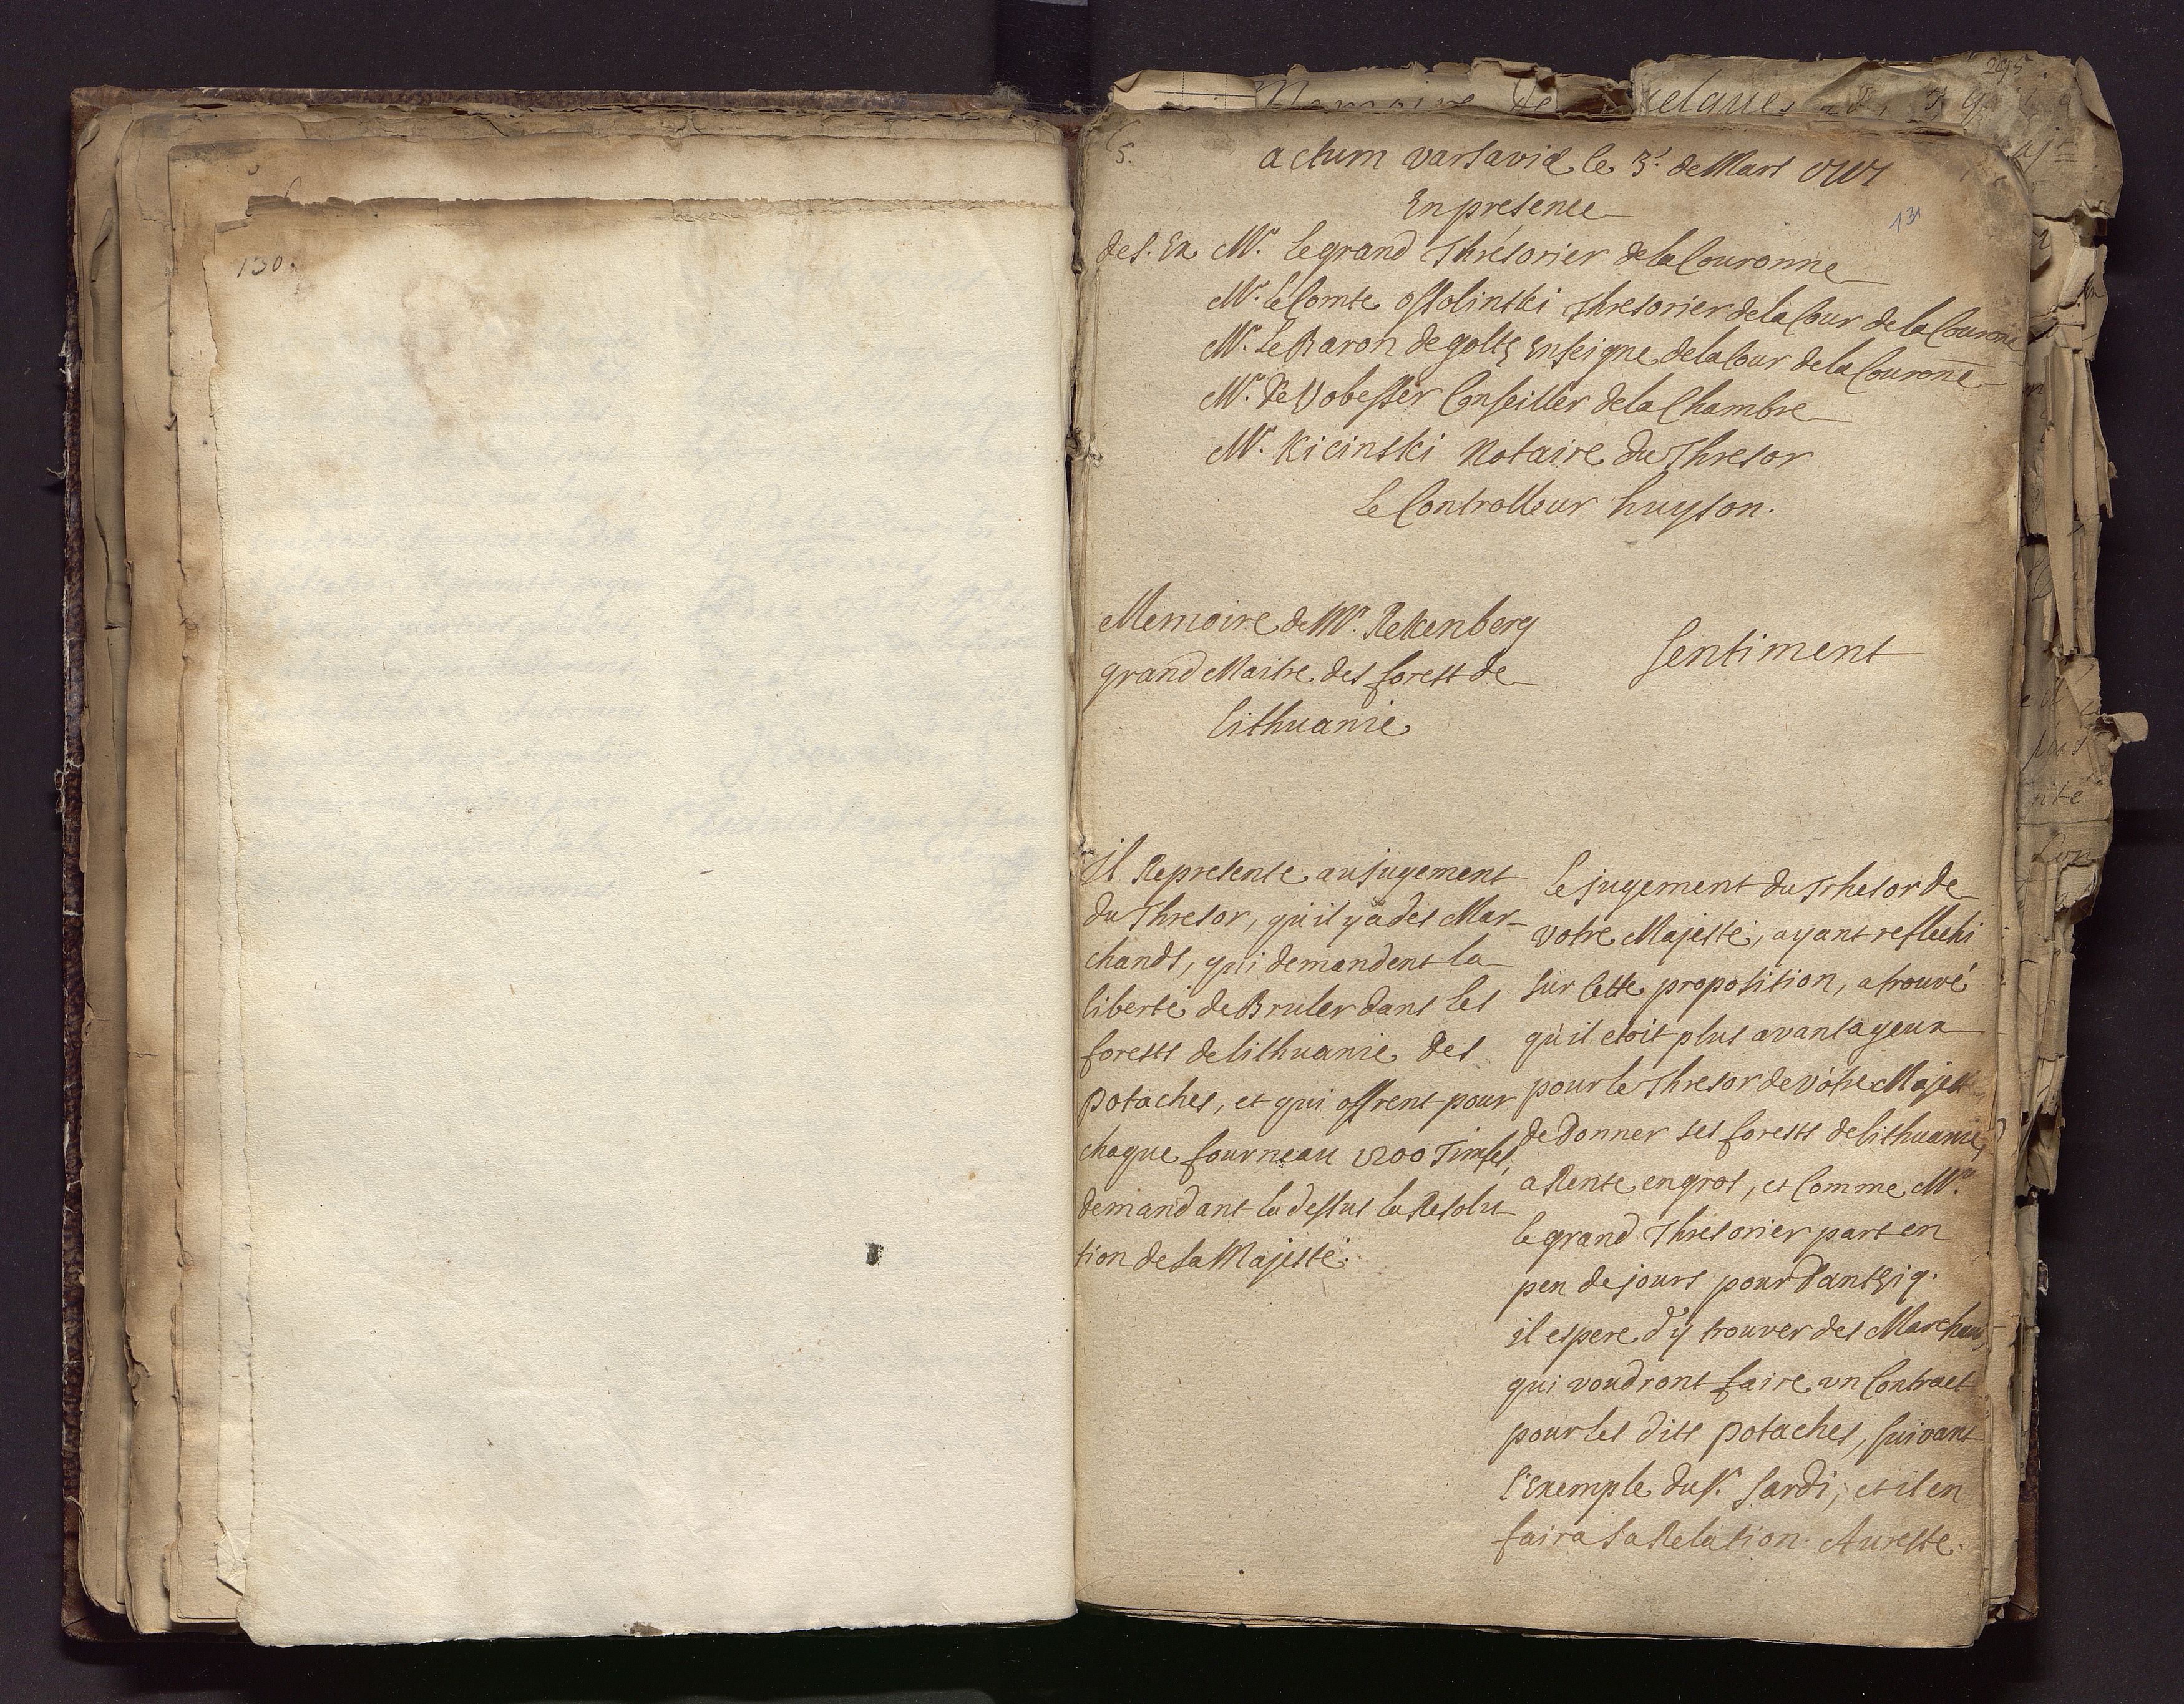 130.
5.
actum varsaviæ le 3. de Mars 1717
131
En presence
de S. Ex Mr. le grand Thrésorier de la Couronne
Mr. Le Comte ossolinski Thresorier de la Cour de la Couronne
Mr. Le Baron de goltz Enseigne de la Cour de la Couronē
Mr. De Vobesser Conseiller de la Chambre
Mr. Kicinski Notaire du Thresor
le Controlleur huyson.
Memoire de Mr. Rekenberg
grand Maitre des forest de
lithuanie
Sentiment
Il Represente au jugement
du Thresor, qu'il y a des Mar-
chands, qui demandent la
liberté de Bruler dans les
forests de lithuanie des
potaches, et qui offrent pour
chaque fourneau 1200 Timfs,
demandant la dessus la Resolu-
tion de sa Majesté.
le jugement du Trhesor de
votre Majesté, ayant reflechi
sur cette proposition, a trouvé
qu'il etoit plus avantageux
pour le Thresor de vôtre Majesté
de donner ses forests de lithuanie,
a Rente en gros, et Comme Mr.
le grand Thresorier part en
peu de jours pour Dantzig.
il espere d'y trouver des Marchands,
qui voudront faire un Contract
pour les dits potaches, suivant
l'Exemple du S. Sardi, et il en
faira sa Relation. Au reste.